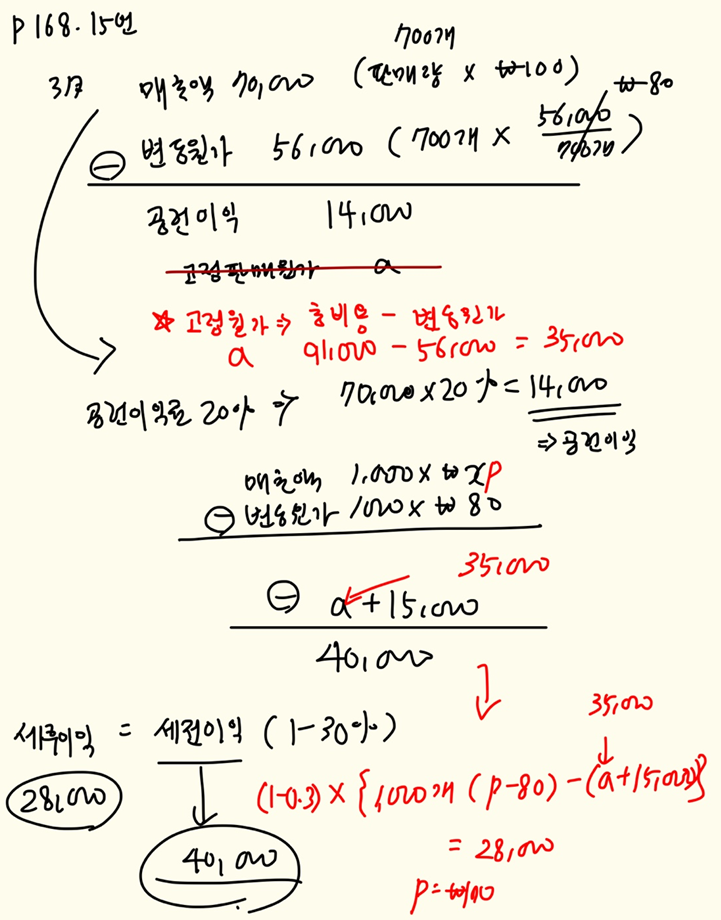 P 168. 15번
700개
3月 매출액 70,000 (판매량 × ₩100)
₩80
⊖ 변동원가 56,000 (700개 × 56,000/700개)
공헌이익 14,000
고정판매원가 a
☆ 고정원가 ⇒ 총비용 - 변동원가
a 91,000 - 56,000 = 35,000
공헌이익률 20% ⇒ 70,000 × 20% = 14,000
⇒ 공헌이익
매출액 1,000 × ₩ p
⊖ 변동원가 1000 × ₩ 80
35,000
⊖ a + 15,000
40,000
세후이익 = 세전이익 (1-30%)
28,000
40,000
35,000
(1-0.3) × {1,000개 (p-80) - (a+15,000)}
= 28,000